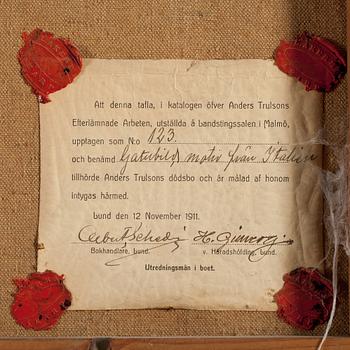 Att denna tafla, i katalogen öfver Anders Trulsons
Efterlämnade Arbeten, utställda å landstingssalen i Malmö,
upptagen som N:o 123.
och benämd Gatubild motiv från Italien
tillhörde Anders Trulsons dödsbo och är målad af honom
intygas härmed.
Lund den 12 November 1911.
H.
Bokhandlare, Lund. v. Häradshöfding, Lund.
Utredningsmän i boet.